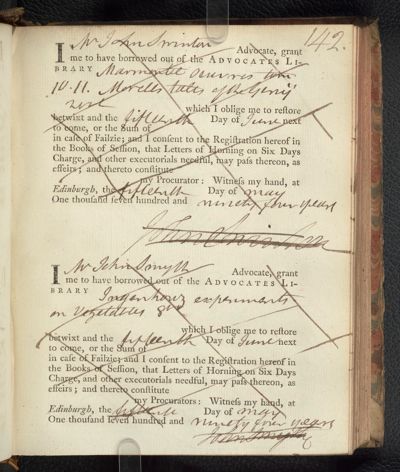 142.
I Mr John Swinton Advocate, grant
me to have borrowed out of the ADVOCATES LI-
BRARY Marmontel oeuvres tom
10. 11. Morells tales of the Genii
8vo
which I oblige me to restore
betwixt and the fifteenth Day of June next
to come, or the Sum of
in case of Failzie; and I consent to the Registration hereof in
the Books of Session, that Letters of Horning on Six Days
Charge, and other executorials needful, may pass thereon, as
effeirs; and thereto constitute
my Procurator: Witness my hand, at
Edinburgh, the fifteenth Day of may
One thousand seven hundred and ninety four years
John Swinton
I Mr John Smyth Advocate, grant
me to have borrowed out of the ADVOCATES LI-
BRARY Ingenhousz experiments
on Vegetables 8vo
which I oblige me to restore
betwixt and the fifteenth Day of June next
to come, or the Sum of
in case of Failzie; and I consent to the Registration hereof in
the Books of Session, that Letters of Horning on Six Days
Charge, and other executorials needful, may pass thereon, as
effeirs; and thereto constitute
my Procurators: Witness my hand, at
Edinburgh, the fifteenth Day of may
One thousand seven hundred and ninety four years
John Smyth